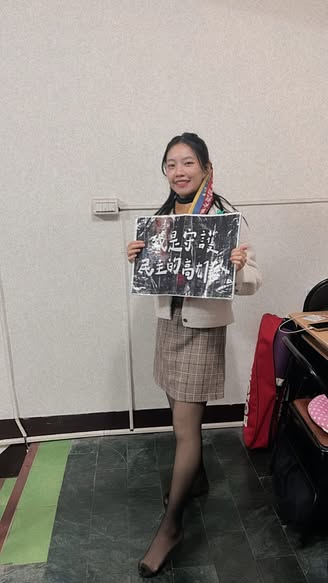 我是守護
民主的高雄人